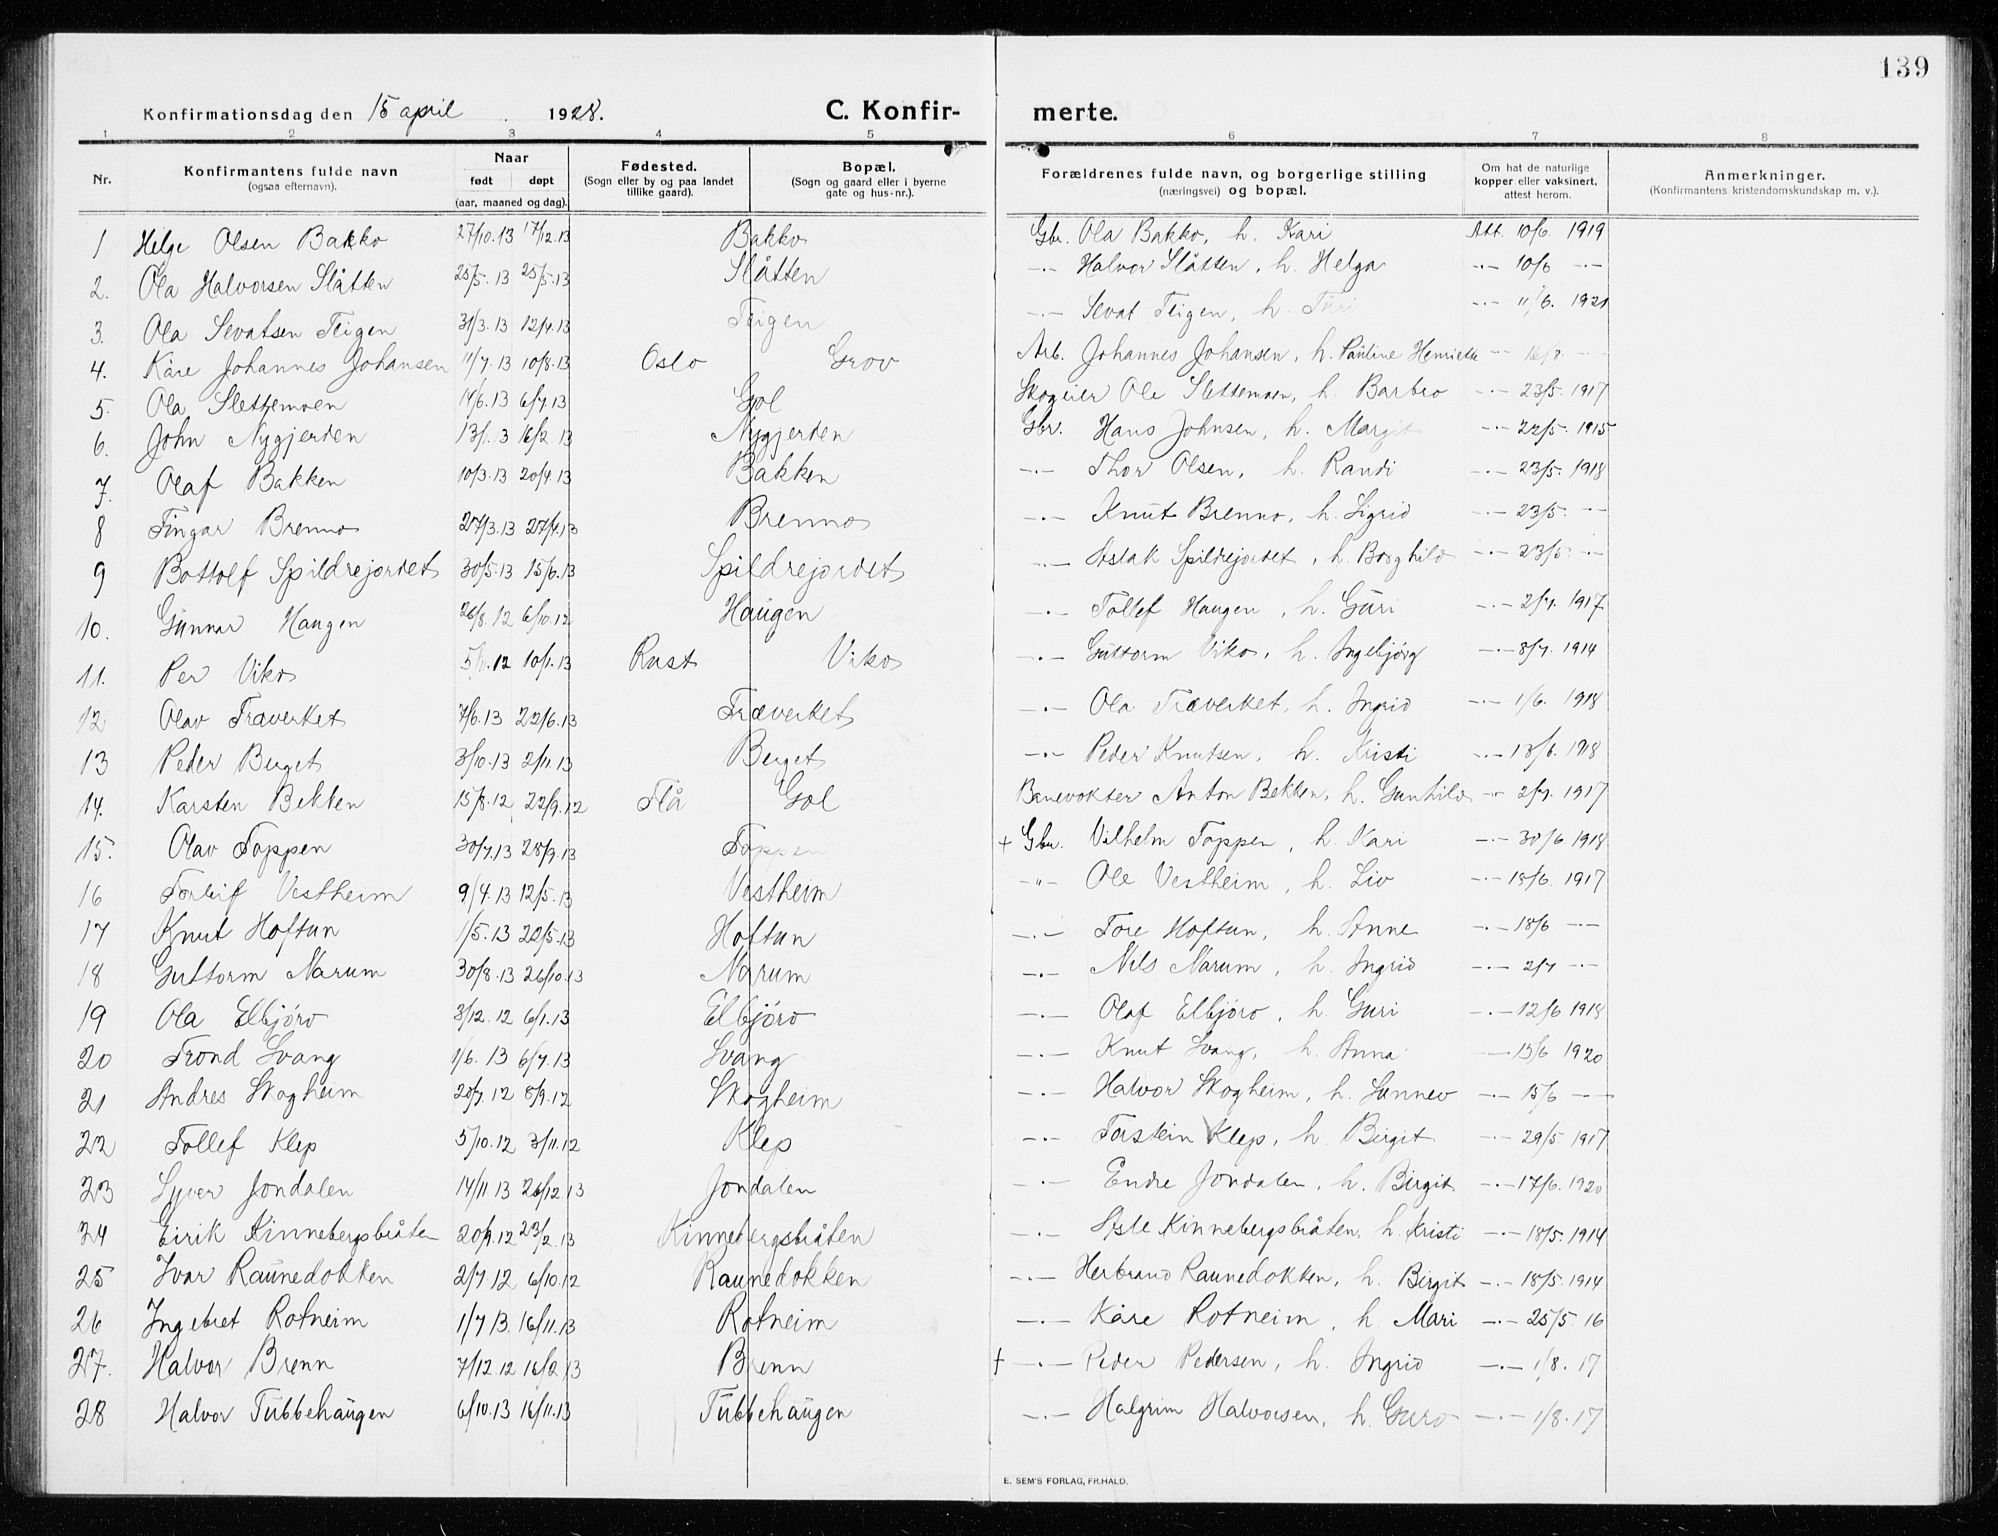 139
Konfirmationsdag den 15 april 1928. C. Konfirmerte.
1 2 3 4 5 6 7 8
Nr. Konfirmantens fulde navn (ogsaa efternavn). Naar født døpt (aar, maaned og dag). Fødested. (Sogn eller by og paa landet tillike gaard). Bopæl. (Sogn og gaard eller i byerne gate og hus-nr.). Forældrenes fulde navn, og borgerlige stilling (næringsvei) og bopæl. Om hat de naturlige kopper eller vaksinert, attest herom. Anmerkninger. (Konfirmantens kristendomskundskap m. v.).
1 Helge Olsen Bakko 27/10.13 17/12.13 Bakko Gbr. Ola Bakko, h. Kari Att. 10/6. 1919
2. Ola Halvorsen Slåtten 25/5.13 25/5.13 Slåtten -.- Halvor Slåtten, h. Helga -.- 10/6 -.-
3. Ola Sevatsen Teigen 31/3.13 12/4.13 Teigen -.- Sevat Teigen, h. Turi -.- 11/6. 1921
4. Kåre Johannes Johansen 11/7.13 10/8.13 Oslo Grov Arb. Johannes Johansen, h. Pauline Henriette -.- 16/8 -.-
5. Ola Slettemoen 14/6.13 6/7.13 Gol Skogeier Ole Slettemoen, h. Barbro -.- 23/5. 1917
6. John Nygjerden 13/1.13 16/2.13 Nygjerden Gbr. Hans Johnsen, h. Margit -.- 22/5. 1915
7. Olaf Bakken 10/3.13 20/4.13 Bakken -.- Thor Olsen, h. Randi -.- 23/5. 1918
8 Fingar Brenno 27/3.13 27/4.13 Brenno -.- Knut Brenno, h. Sigrid -.- 23/5. -.-
9 Bottolf Spildrejordet 30/5.13 15/6.13 Spildrejordet -.- Aslak Spildrejordet, h. Borghild -.- 23/5. -.-
10. Gunnar Haugen 26/8.12 6/10.12 Haugen -.- Tollef Haugen, h. Guri -.- 2/7. 1917.
11. Per Viko 12 10/1.13 Rust Viko -.- Guttorm Viko, h. Ingebjörg -.- 8/7. 1914
12 Olav Træverket 7/6.13 22/6.13 Træverket -.- Ola Træverket, h. Ingrid -.- 1/6. 1918
13 Peder Berget 3/10.13 2/11.13 Berget -.- Peder Knutsen, h. Kristi -.- 13/6. 1918
14. Karsten Bekken 15/8.12 22/9.12 Flå Gol Banevokter Anton Bekken, h. Gunhild -.- 2/7. 1917
15. Olav Toppen 30/7.13 28/9.13 Toppen + Gbr. Vilhelm Toppen, h. Kari -.- 30/6 1918
16 Torleif Vestheim 9/4.13 12/5.13 Vestheim -"- Ole Vestheim, h. Liv -.- 18/6. 1917
17 Knut Hoftun 1/5.13 22/5.13 Hoftun -.- Tore Hoftun, h. Anne -.- 18/6 -.-
18 Guttorm Narum 30/8.13 26/10.13 Narum -.- Nils Narum, h. Ingrid -.- 2/7 -.-
19 Ola Elbjöro 3/12.12 6/1.13 Elbjöro -.- Olaf Elbjöro, h. Guri -.- 12/6 1918
20 Trond Svang 1/6.13 6/7.13 Svang -.- Knut Svang, h. Anna -.- 15/6 1920
21 Andres Skogheim 20/7.12 8/9.12 Skogheim -.- Halvor Skogheim, h. Sunnev -.- 15/6 -.-
22 Tollef Klep 5/10.12 3/11.12 Klep -.- Torstein Klep, h. Birgit -.- 29/5 1917
23 Syver Jondalen 14/11.13 26/12.13 Jondalen -.- Endre Jondalen, h. Birgit -.- 17/6. 1920
24 Eirik Kinnebergsbråten 20/9.12 23/2.13 Kinnebergsbråten -.- Asle Kinnebergsbråten, h. Kristi -.- 18/5. 1914
25 Ivar Raunedokken 2/7.12 6/10.12 Raunedokken -.- Herbrand Raunedokken, h. Birgit -.- 18/5. 1914
26 Ingebret Rotneim 1/7 13. 16/11.13 Rotneim -.- Kåre Rotneim, h. Mari -.- 25/5. 16
27. Halvor Brenn 7/12.12 16/2.13 Brenn + -.- Peder Pedersen, h. Ingrid -.- 1/8. 17
28 Halvor Tubbehaugen 6/10.13 16/11.13 Tubbehaugen -.- Halgrim Halvorsen, h. Guro -.- 1/8. 17
E. SEM'S FORLAG, FR.HALD.